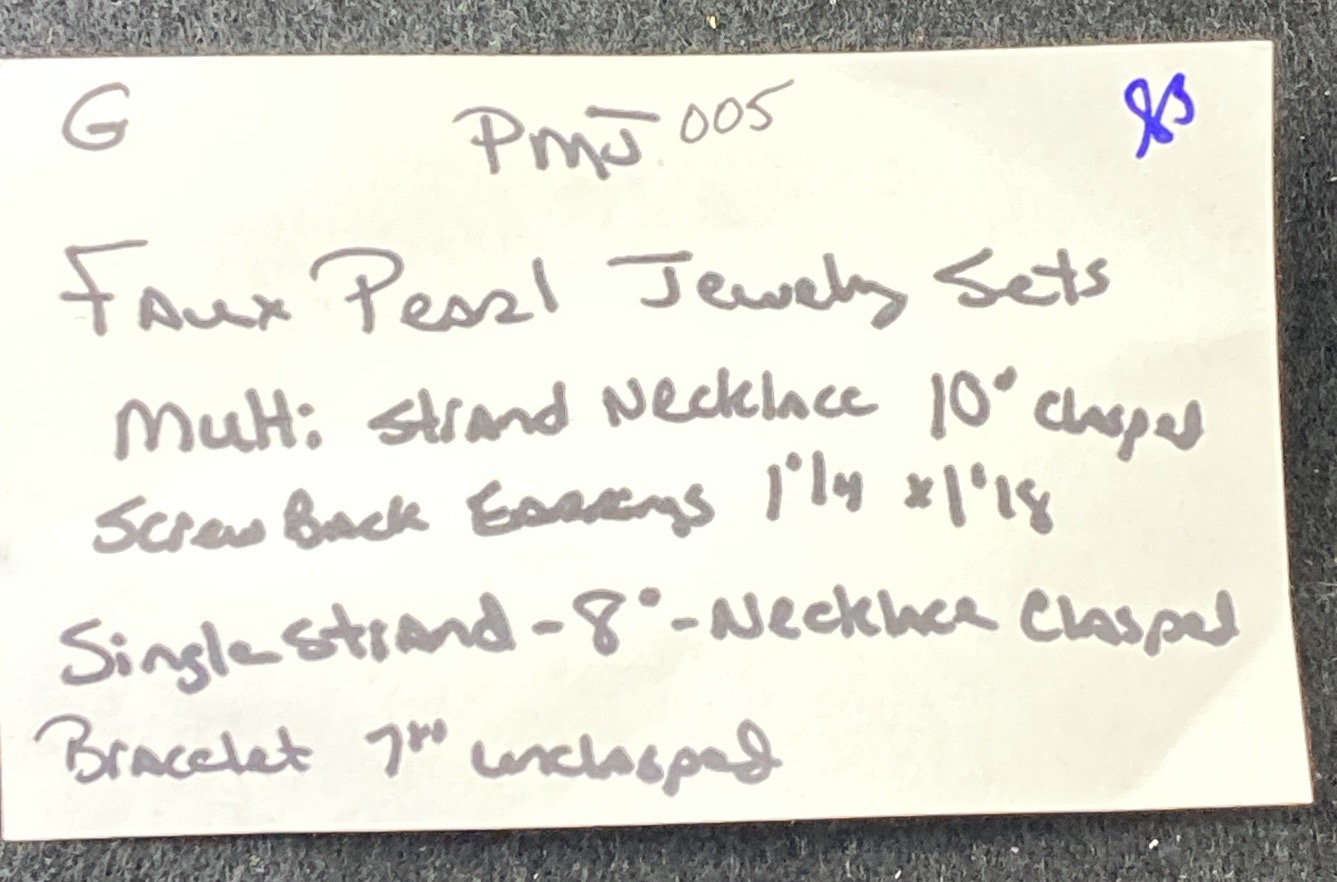 G PMJ 005
Faux Pearl Jewelry Sets
Multi: strand Necklace 10" clasped
Screw Back Earrings 1"1/4 x 1"1/8
Single strand - 8" - Necklace Clasped
Bracelet 7" unclasped